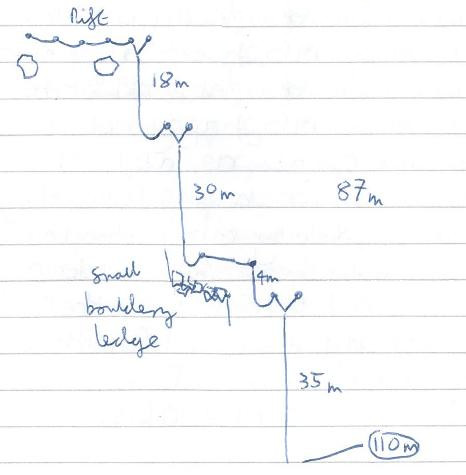 Rift
18m
30m
87m
4m
small
bouldery
ledge
35m
110m